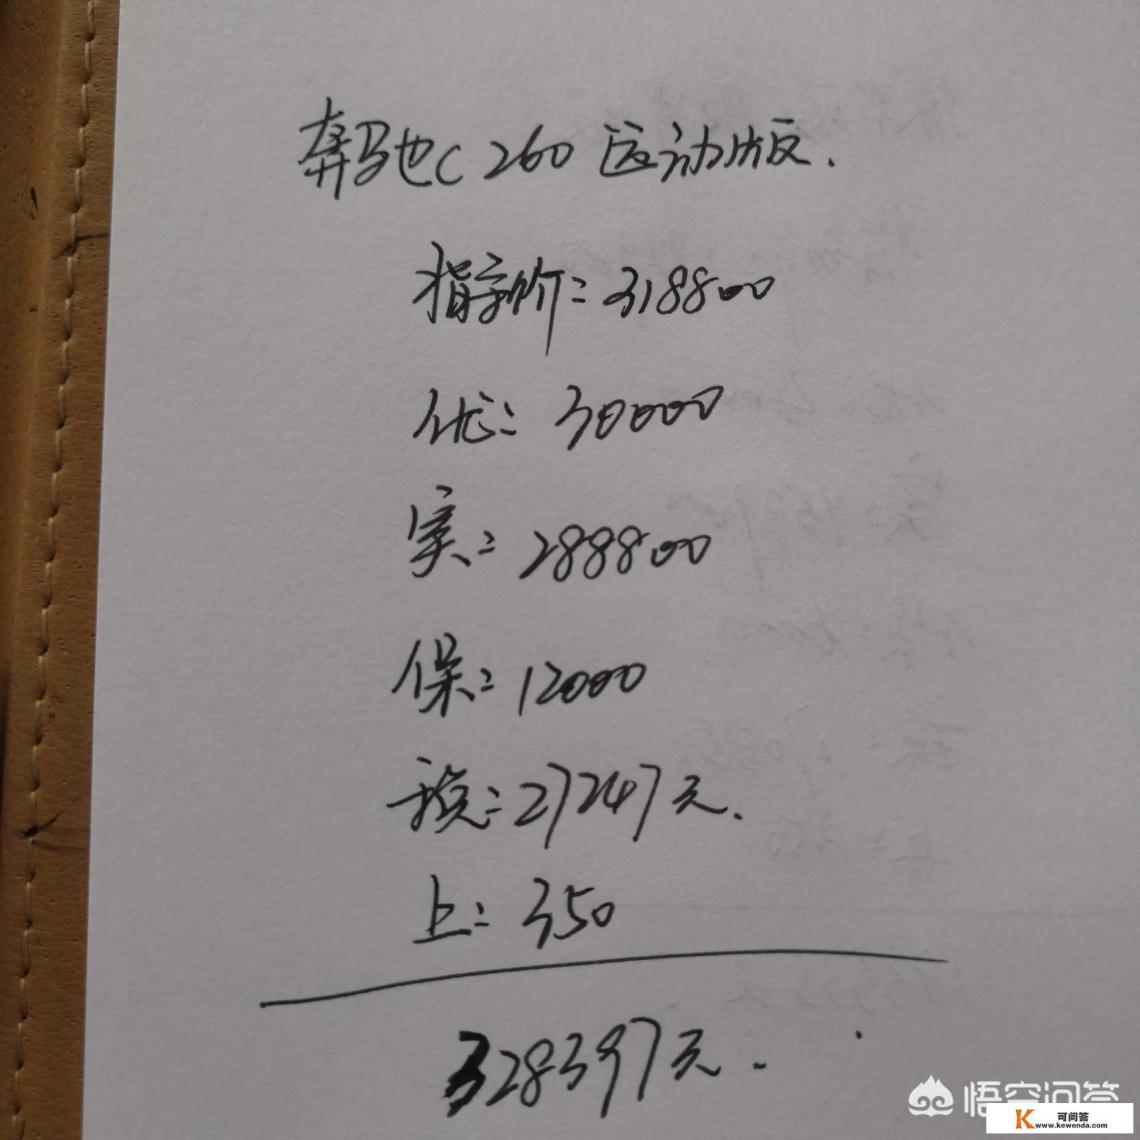 奔驰C260运动版.
指导价:318800
优:30000
实:288800
保:12000
税:27247元.
上:350
328397元.
悟空问答
K 可问答
www.kewenda.com